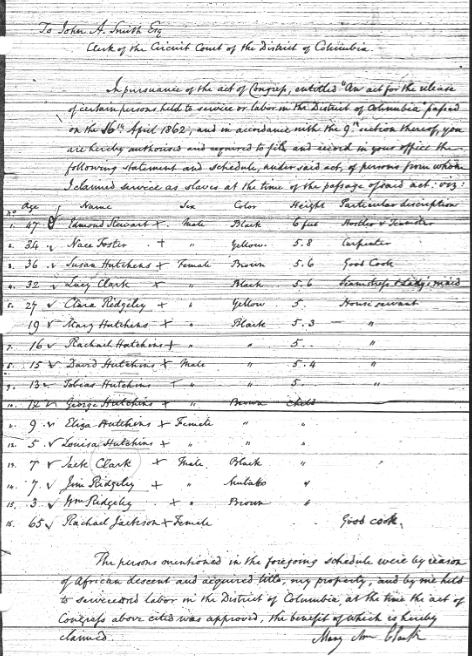 To John A. Smith Esq
Clerk of the Circuit Court of the District of Columbia.
In pursuance of the act of Congress, entitled "An act for the release
of certain persons held to service or labor in the District of Columbia" passed
on the 16th April 1862, and in accordance with the 9th section thereof, you
are hereby authorised and required to file and record in your office the
following statement and schedule, under said act, of persons from whom
I claimed service as slaves at the time of the passage of said act: viz:
No Age Name Sex Color Height Particular discription
1. 47 Edmond Stewart + Male Black 6 feet Hostler & Teamster
2. 34 Nace Foster + " Yellow. 5.8 Carpenter
3. 36 Susan Hutchens + Female Brown 5.6 Good Cook
4. 32 Lucy Clark + " Black 5.6 Seamstress & Lady's maid
5. 27 Clara Ridgeley + " Yellow 5. House servant
19 Mary Hutchens + " Black 5.3 — "
7. 16 Rachael Hutchins + " " 5.. "
8. 15 David Hutchins + Male " 5.4 "
9. 13 Tobias Hutchins + " " 5. "
10. 14 George Hutchins + " Brown Child
9 Eliza Hutchens + Female " "
12. 5 Louisa Hutchins + " " "
13. 7 Jack Clark + Male Black "
14. 7 Jim Ridgeley + " Mulatto "
15. 3 Wm Ridgeley + " Brown "
16. 65 Rachael Jackson + Female Good cook.
The persons mentioned in the foregoing schedule were by reason
of African descent and acquired title, my property, and by me held
to service and labor in the District of Columbia, at the time the act of
Congress above cited was approved, the benefit of which is hereby
claimed.
Mary Ann Clark